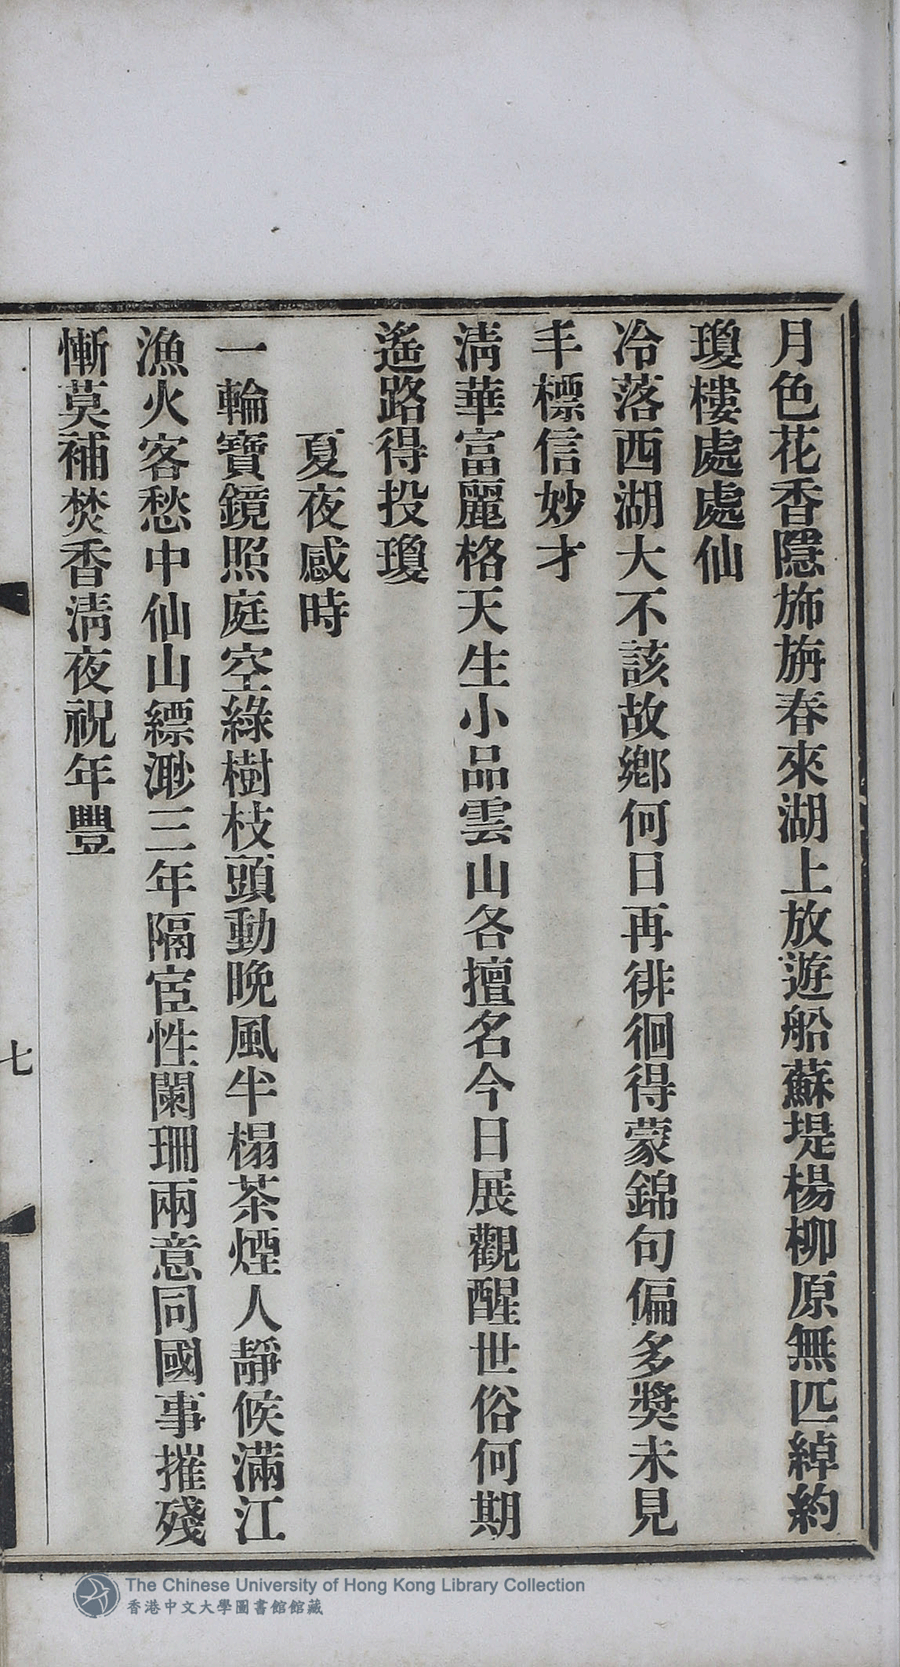 月色花香隱斾旃春來湖上放遊船蘇堤楊柳原無匹綽約
瓊樓處處仙
冷落西湖大不該故鄉何日再徘徊得蒙錦句偏多獎未見
丰標信妙才
淸華富麗格天生小品雲山各擅名今日展觀醒世俗何期
遙路得投瓊
夏夜感時
一輪寶鏡照庭空綠樹枝頭動晚風半榻茶煙人靜候滿江
漁火客愁中仙山縹渺三年隔宦性闌珊兩意同國事摧殘
慚莫補焚香淸夜祝年豐
七
The Chinese University of Hong Kong Library Collection
香港中文大學圖書館館藏